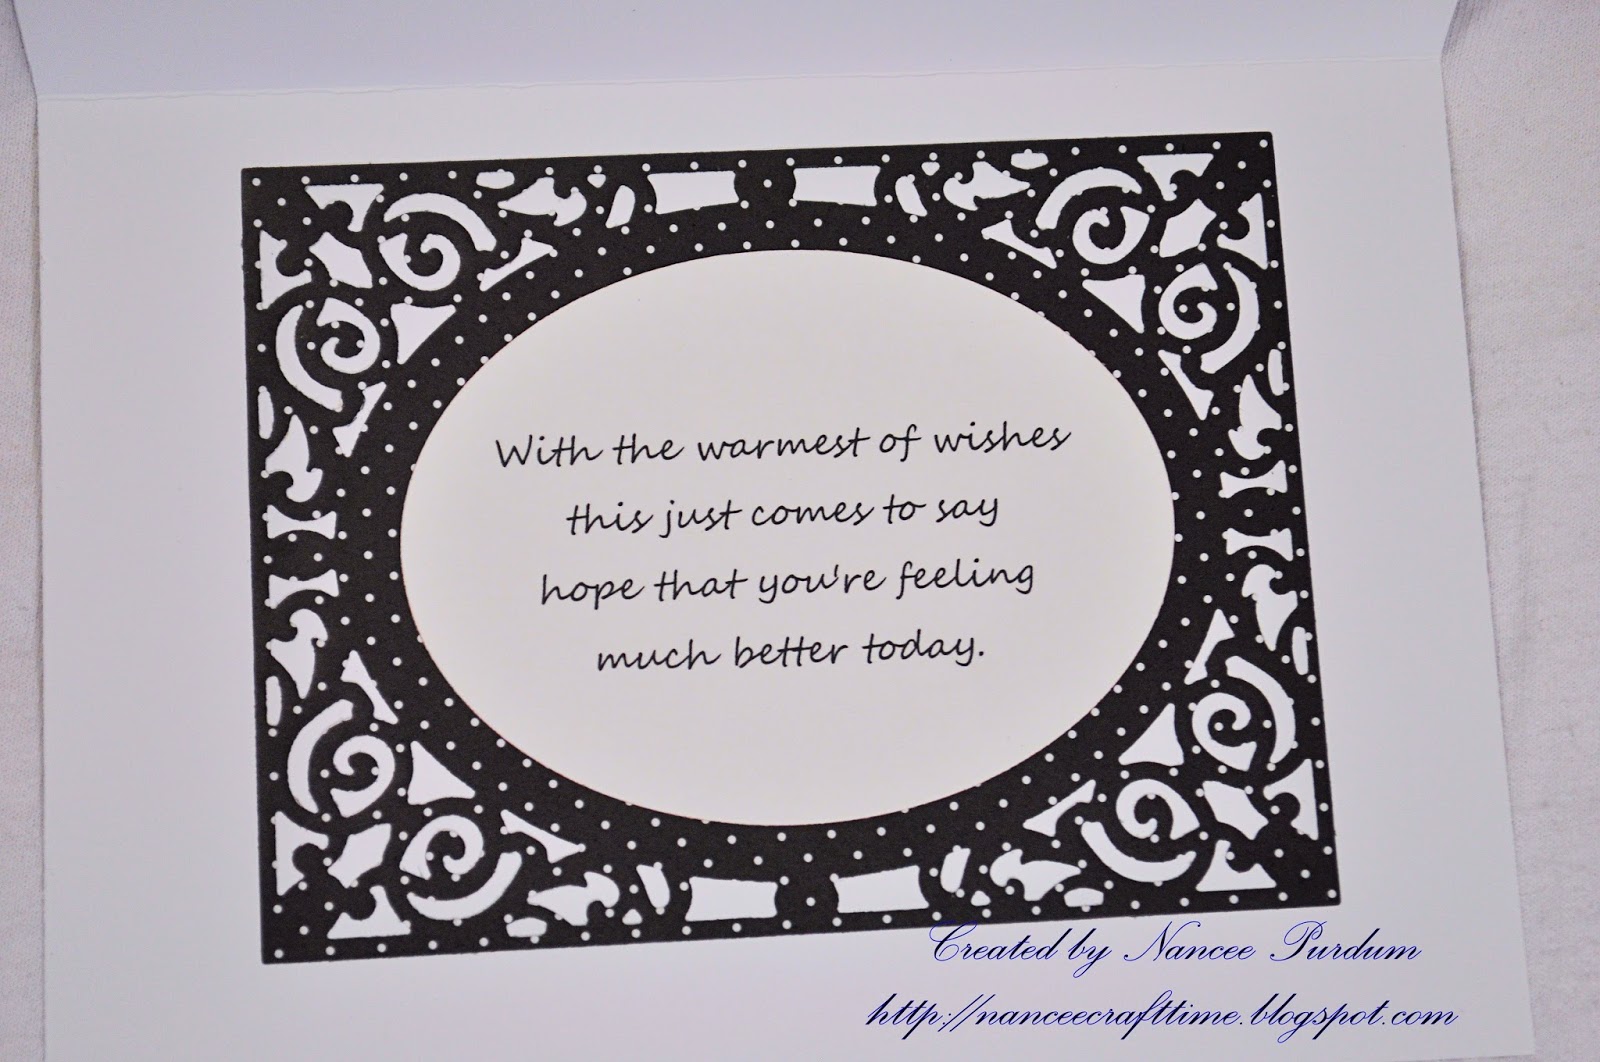 With the warmest of wishes
this just comes to say
hope that you're feeling
much better today.
Created by Nancee Purdum
http://nanceecrafttime.blogspot.com